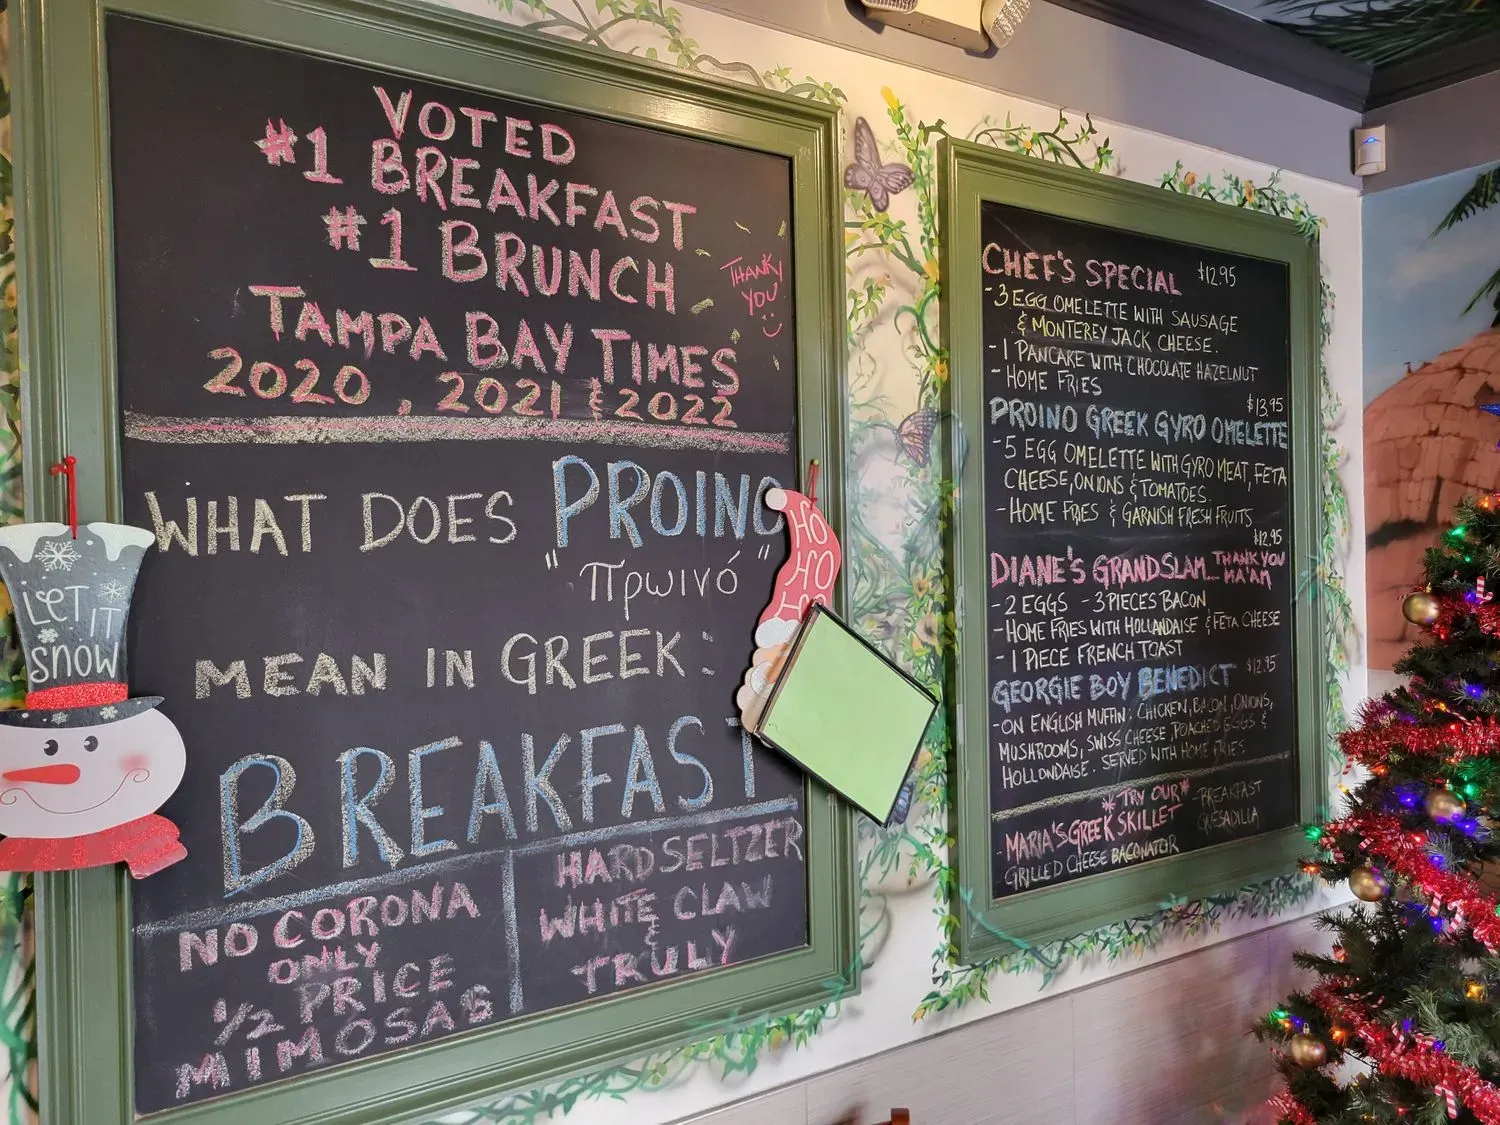 VOTED
#1 BREAKFAST
#1 BRUNCH
TAMPA BAY TIMES
2020, 2021 & 2022
THANK
YOU
WHAT DOES PROINO
"πρωινό"
MEAN IN GREEK:
BREAKFAST
NO CORONA
ONLY
1/2 PRICE
MIMOSAS
HARD SELTZER
WHITE CLAW
&
TRULY
LET IT
SNOW
HO
HO
HO
CHEF'S SPECIAL $12.95
-3 EGG OMELETTE WITH SAUSAGE
& MONTEREY JACK CHEESE.
-1 PANCAKE WITH CHOCOLATE HAZELNUT
-HOME FRIES
$13.95
PROINO GREEK GYRO OMELETTE
-5 EGG OMELETTE WITH GYRO MEAT, FETA
CHEESE, ONIONS & TOMATOES.
-HOME FRIES & GARNISH FRESH FRUITS
$12.95
DIANE'S GRANDSLAM... THANK YOU
MA'AM
-2 EGGS -3 PIECES BACON
-HOME FRIES WITH HOLLANDAISE & FETA CHEESE
-1 PIECE FRENCH TOAST
GEORGIE BOY BENEDICT $12.95
-ON ENGLISH MUFFIN: CHICKEN, BACON, ONIONS,
MUSHROOMS, SWISS CHEESE, POACHED EGGS &
HOLLONDAISE. SERVED WITH HOME FRIES
*TRY OUR*
-MARIA'S GREEK SKILLET
GRILLED CHEESE BACONATOR
-BREAKFAST
QUESADILLA